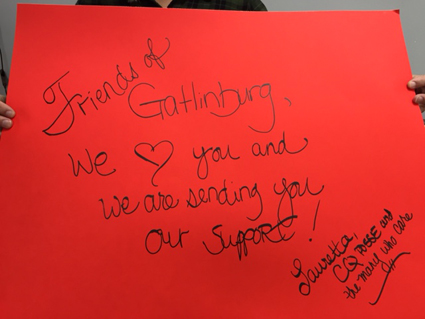 Friends of
Gatlinburg,
We ♡ you and
we are sending you
our support!
Lauretta,
CQ and
the many who care